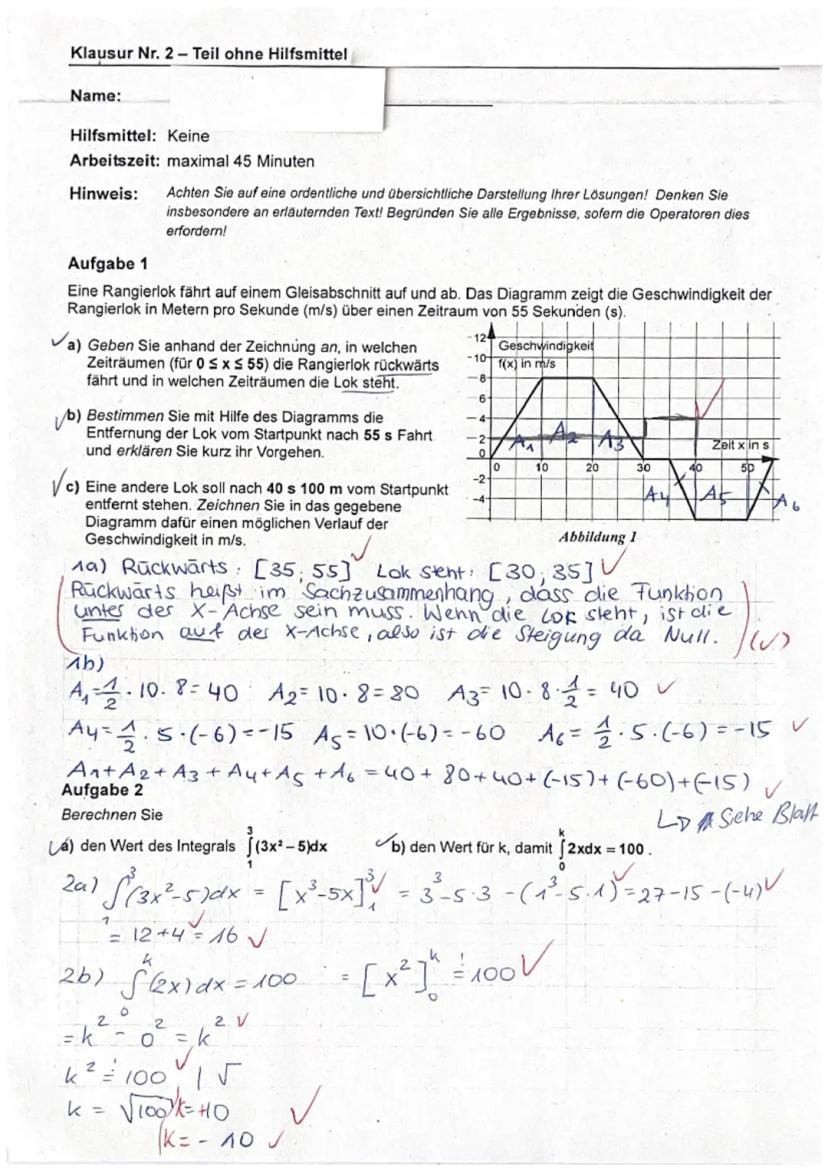 Klausur Nr. 2 – Teil ohne Hilfsmittel
Name:
Hilfsmittel: Keine
Arbeitszeit: maximal 45 Minuten
Hinweis: Achten Sie auf eine ordentliche und übersichtliche Darstellung Ihrer Lösungen! Denken Sie
insbesondere an erläuternden Text! Begründen Sie alle Ergebnisse, sofern die Operatoren dies
erfordern!
Aufgabe 1
Eine Rangierlok fährt auf einem Gleisabschnitt auf und ab. Das Diagramm zeigt die Geschwindigkeit der
Rangierlok in Metern pro Sekunde (m/s) über einen Zeitraum von 55 Sekunden (s).
a) Geben Sie anhand der Zeichnung an, in welchen
Zeiträumen (für 0 ≤ x ≤ 55) die Rangierlok rückwärts
fährt und in welchen Zeiträumen die Lok steht.
b) Bestimmen Sie mit Hilfe des Diagramms die
Entfernung der Lok vom Startpunkt nach 55 s Fahrt
und erklären Sie kurz ihr Vorgehen.
c) Eine andere Lok soll nach 40 s 100 m vom Startpunkt
entfernt stehen. Zeichnen Sie in das gegebene
Diagramm dafür einen möglichen Verlauf der
Geschwindigkeit in m/s.
12 Geschwindigkeit
10 f(x) in m/s
8
6
4
2 A1 A2 A3 Zeit x in s
0
0 10 20 30 40 50
-2
-4 A4 A5 A6
Abbildung 1
1a) Rückwärts: [35; 55] Lok steht: [30; 35]
Rückwärts heißt im Sachzusammenhang, dass die Funktion
unter der X-Achse sein muss. Wenn die Lok steht, ist die
Funktion auf der X-Achse, also ist die Steigung da Null. (✓)
1b)
A1 = 1/2 · 10 · 8 = 40 A2 = 10 · 8 = 80 A3 = 10 · 8 · 1/2 = 40 ✓
A4 = 1/2 · 5 · (-6) = -15 A5 = 10 · (-6) = -60 A6 = 1/2 · 5 · (-6) = -15 ✓
A1 + A2 + A3 + A4 + A5 + A6 = 40 + 80 + 40 + (-15) + (-60) + (-15) ✓
Aufgabe 2
Berechnen Sie
↳ Siehe Blatt
a) den Wert des Integrals ∫₁³(3x² – 5)dx b) den Wert für k, damit ∫₀ᵏ2xdx = 100 .
2a) ∫₁³(3x²-5)dx = [x³-5x]₁³ ✓ = 3³-5·3 - (1³-5·1) ✓ = 27-15-(-4) ✓
= 12+4 = 16 ✓
2b) ∫₀ᵏ(2x)dx = 100 = [x²]₀ᵏ =! 100 ✓
= k² - 0² = k² ✓
k² =! 100 ✓ | √
k = √100 k = +10 ✓
k = - 10 ✓